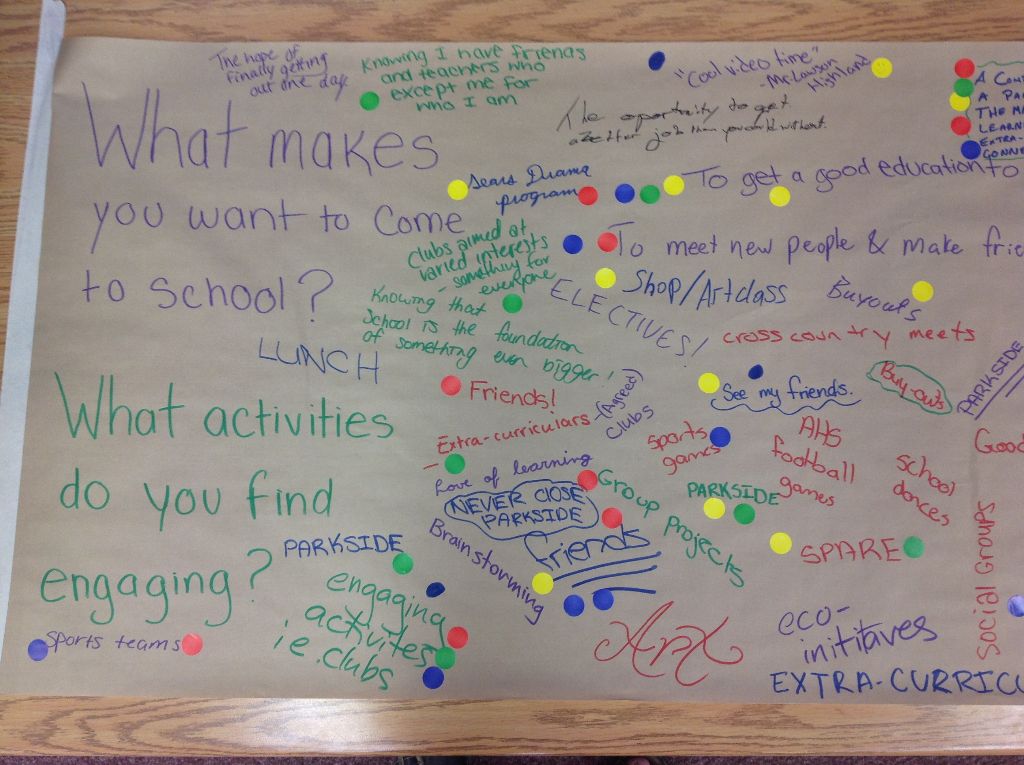 The hope of
finally getting
out one day.
Knowing I have friends
and teachers who
except me for
who I am
"Cool video time"
- Mr. Lawson
Highland
The oportunity to get
a better job than you would without.
A
A PA
THE
LEARN
EXTRA-
CONNE
What makes
you want to come
to school?
Sears Drama
program
To get a good education to
clubs aimed at
varied interests
- something for
everyone
To meet new people & make frie
Shop/Art class
Buyouts
ELECTIVES!
Knowing that
School is the foundation
of something even bigger!
cross country meets
LUNCH
PARKSIDE
Friends!
See my friends.
Buy-outs
What activities
do you find
engaging?
- Extra-curriculars
- (Agreed)
clubs
sports
games
AHS
football
games
school
dances
Good
Love of learning
NEVER CLOSE
PARKSIDE
Group Projects
PARKSIDE
Social Groups
PARKSIDE
Brainstorming
friends
SPARE
engaging
activites
i.e. clubs
Sports teams
Art
eco-
inititaves
EXTRA-CURRICU